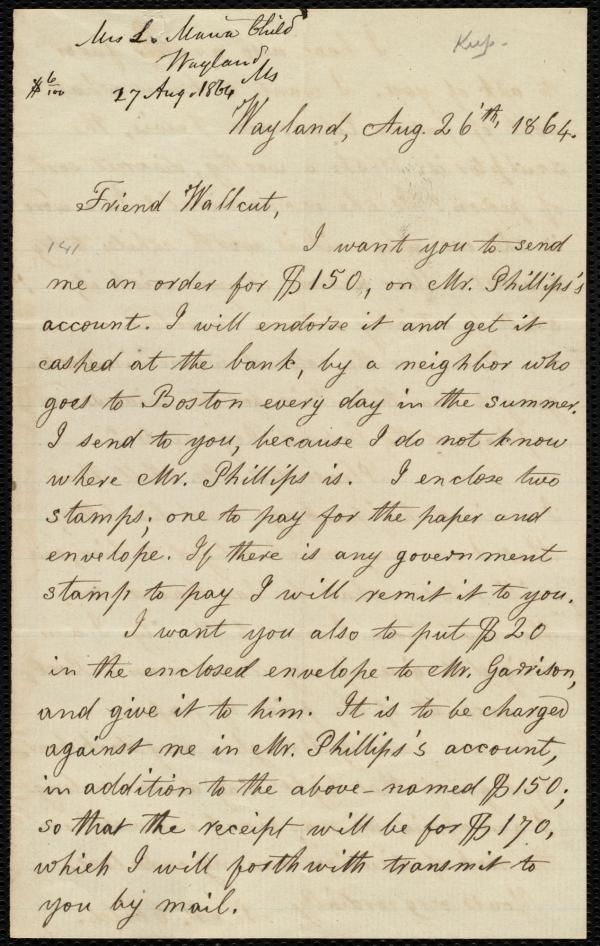 Mrs L. Maria Child
Wayland
Ms
$ 6/100
27 Aug. 1864
Keep.
Wayland, Aug. 26'th, 1864.
Friend Wallcut,
141
I want you to send
me an order for $150, on Mr. Phillips's
account. I will endorse it and get it
cashed at the bank, by a neighbor who
goes to Boston every day in the summer.
I send to you, because I do not know
where Mr. Phillips is. I enclose two
stamps; one to pay for the paper and
envelope. If there is any government
stamp to pay I will remit it to you.
I want you also to put $20
in the enclosed envelope to Mr. Garrison,
and give it to him. It is to be charged
against me in Mr. Phillips's account,
in addition to the above-named $150;
so that the receipt will be for $170,
which I will forthwith transmit to
you by mail.